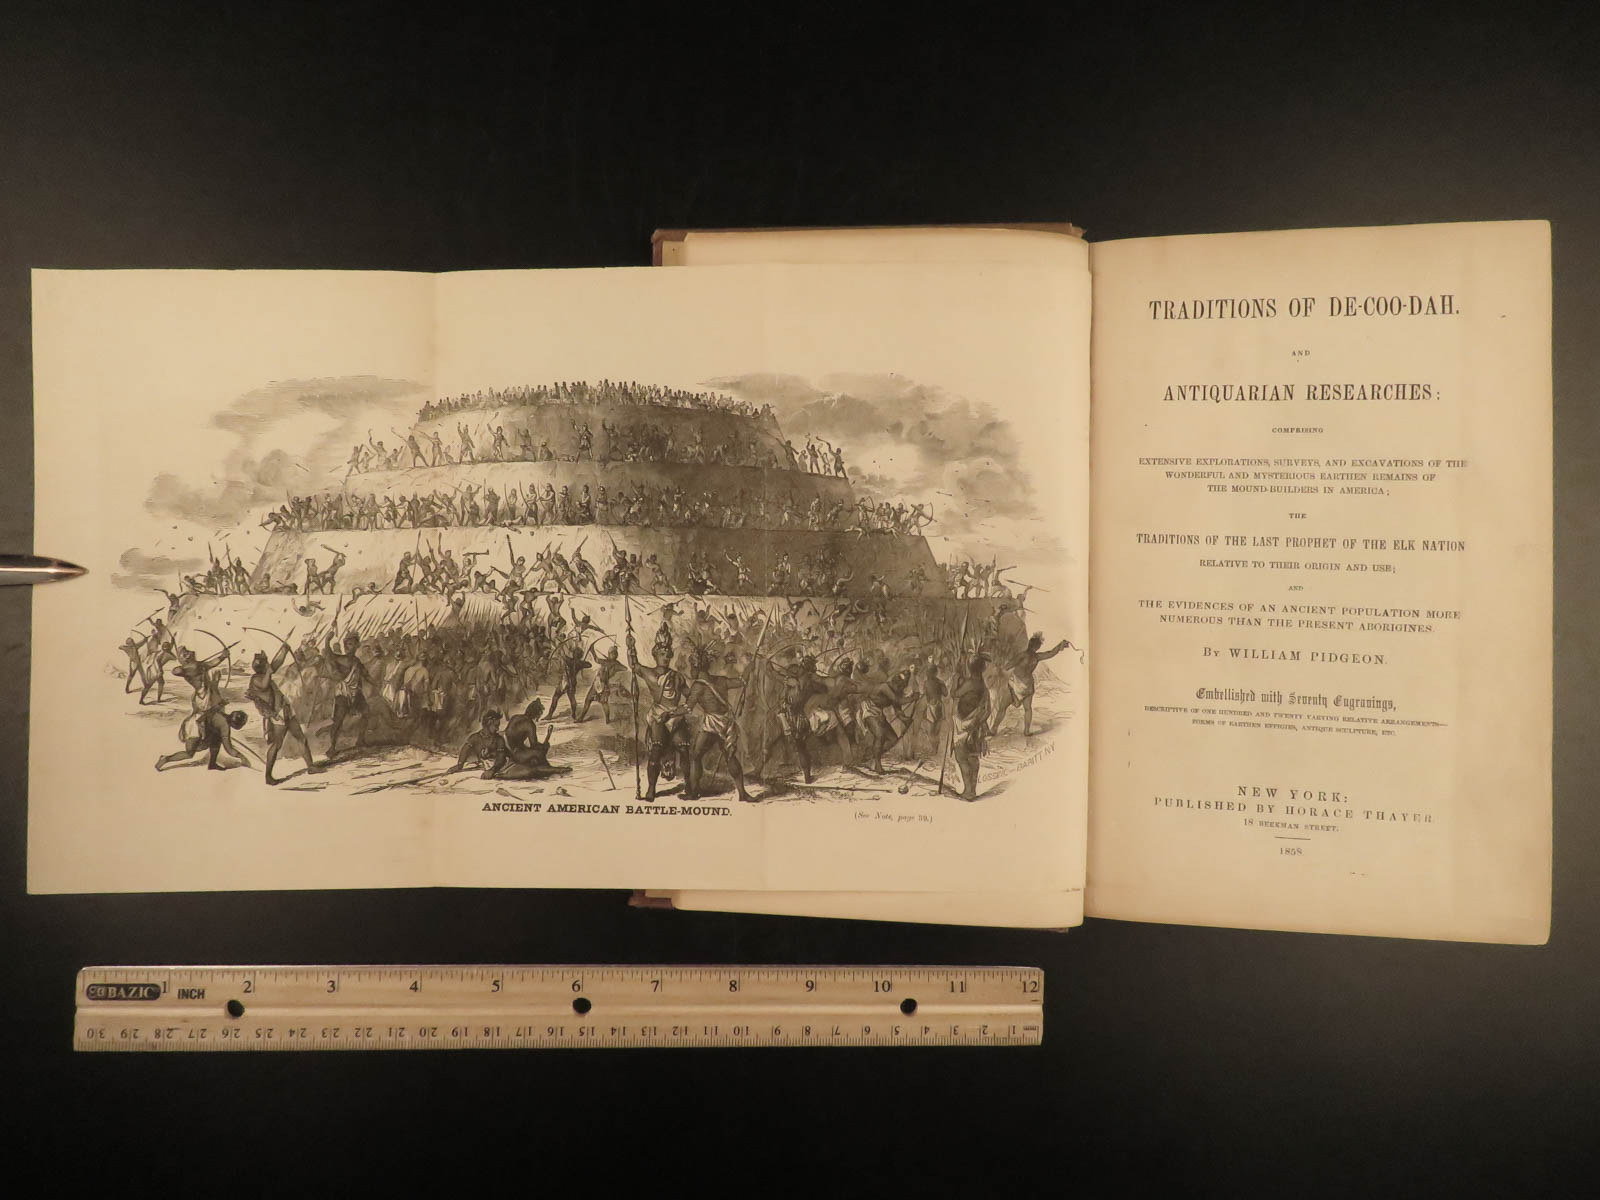 ANCIENT AMERICAN BATTLE-MOUND.
(See Note, page 59.)
TRADITIONS OF DE-COO-DAH.
AND
ANTIQUARIAN RESEARCHES:
COMPRISING
EXTENSIVE EXPLORATIONS, SURVEYS, AND EXCAVATIONS OF THE
WONDERFUL AND MYSTERIOUS EARTHEN REMAINS OF
THE MOUND-BUILDERS IN AMERICA;
THE
TRADITIONS OF THE LAST PROPHET OF THE ELK NATION
RELATIVE TO THEIR ORIGIN AND USE;
AND
THE EVIDENCES OF AN ANCIENT POPULATION MORE
NUMEROUS THAN THE PRESENT ABORIGINES.
By WILLIAM PIDGEON.
Embellished with Seventy Engravings,
DESCRIPTIVE OF ONE HUNDRED AND TWENTY VARYING RELATIVE ARRANGEMENTS—
FORMS OF EARTHEN EFFIGIES, ANTIQUE SCULPTURE, ETC.
NEW YORK:
PUBLISHED BY HORACE THAYER
18 BEEKMAN STREET.
1858
BAZIC 1 INCH 2 3 4 5 6 7 8 9 10 11 12
30 29 28 27 26 25 24 23 22 21 20 19 18 17 16 15 14 13 12 11 10 9 8 7 6 5 4 3 2 1